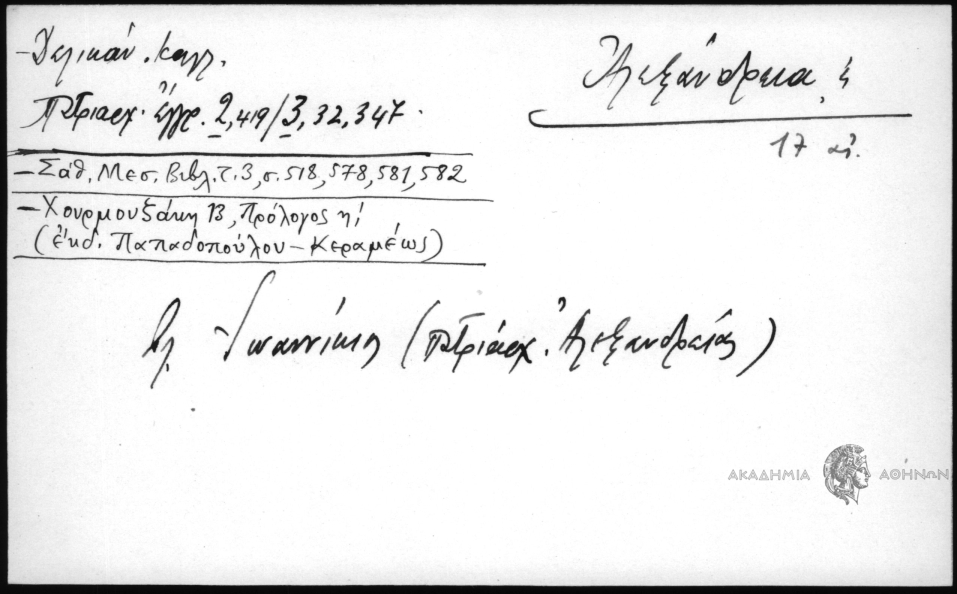 Ἀλεξάνδρεια, ἡ
17 αἰ.
– Δελικάν. Καλλ.
Πατριαρχ. ἔγγρ. 2, 419/3, 32, 347.
– Σάθ. Μεσ. Βιβλ. τ. 3, σ. 518, 578, 581, 582
– Χουρμουζάκη 13, Πρόλογος η΄
(ἐκδ. Παπαδοπούλου – Κεραμέως)
βλ. Ἰωαννίκιος (Πατριάρχ. Ἀλεξανδρείας)
ΑΚΑΔΗΜΙΑ ΑΘΗΝΩΝ